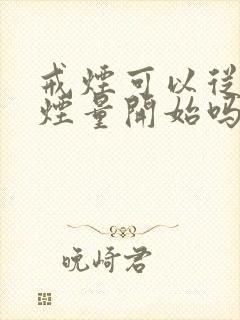 戒煙可以從
煙量開始嗎
晚崎君